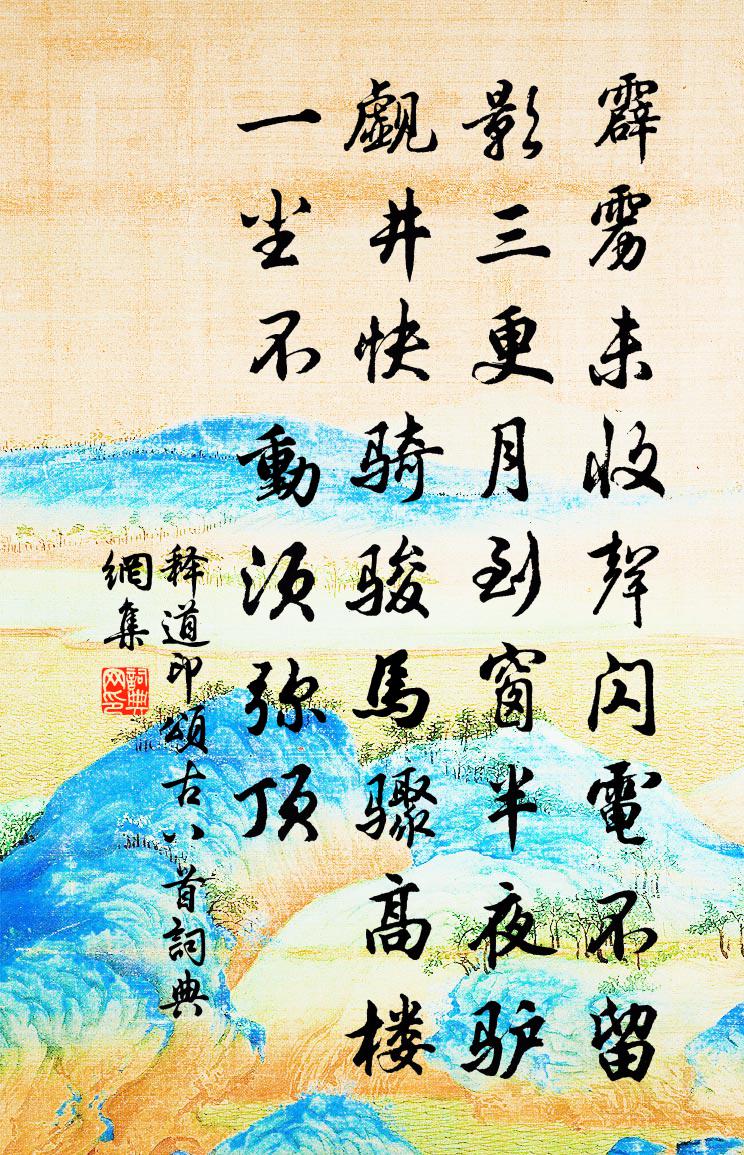 霹雳未收聲闪電不留
影三更月到窗半夜驴
觑井快骑骏馬骤高楼
一尘不動须弥顶
释道印頌古八首詞典
網集
詞典网印